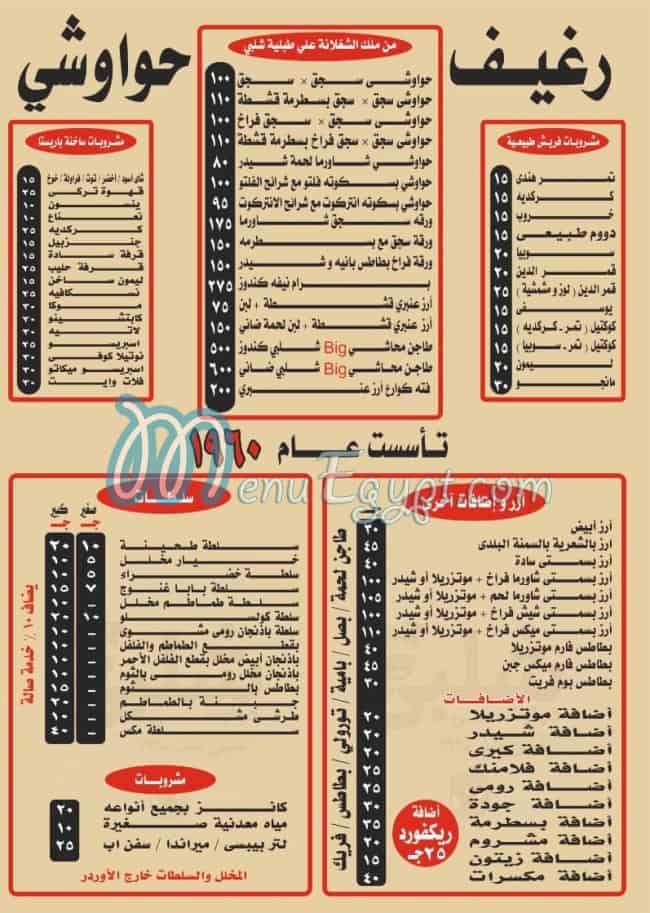 رغيف
حواوشي
مشروبات فريش طبيعية
تمر هندى ١٥
كركديه ١٥
خروب ١٥
دووم طبيعى ١٥
سوبيا ٢٠
قمر الدين ٢٠
قمر الدين ( لوز و مشمشية ) ٢٥
يوسفى ١٥
كوكتيل ( تمر ـ كركديه ) ١٥
كوكتيل ( تمر ـ سوبيا ) ١٥
ليمون ٢٠
مانجو ٣٠
من ملك الشغلانة علي طبلية شلبي
حواوشى سجق × سجق ١٠٠
حواوشى سجق × سجق بسطرمة قشطة ١١٠
حواوشى سجق × سجق فراخ ١٠٠
حواوشى سجق × سجق فراخ بسطرمة قشطة ١١٠
حواوشي شاورما لحمة شيدر ٨٠
حواوشي بسكوته فلتو مع شرائح الفلتو ١٠٠
حواوشي بسكوته انتركوت مع شرائح الانتركوت ٩٥
ورقه سجق شاورما ١٧٥
ورقة سجق مع بسطرمه ١٥٠
ورقة فراخ بطاطس بانيه و شيدر ١٥٠
برام نيفه كندوز ٢٧٥
أرز عنبري قشطة + لبن ٧٥
أرز عنبري قشطة + لبن لحمة ضاني ١٥٠
طاجن محاشي Big شلبي كندوز ٥٠٠
طاجن محاشي Big شلبي ضاني ٦٠٠
فته كوارع أرز عنبري ٢٠٠
مشروبات ساخنة باريستا
شاى أسود / أخضر / توت / فراولة / خوخ ١٥
قهوة تركى ٢٥
ينسون ١٠
نعناع ١٠
كركديه ٢٥
جنزبيل ١٥
قرفة سادة ١٥
قرفة حليب ٢٥
ليمون ساخن ١٥
نسكافيه ٢٥
موكا ٣٠
كابتشينو ٣٠
لاتيه ٣٠
اسبريسو ٢٥
نوتيلا كوفى ٣٠
اسبريسو ميكاتو ٣٠
فلات وايت ٣٠
تأسست عام ١٩٦٠
MenuEgypt.com
أرز و إضافات أخرى
أرز أبيض ٣٠
أرز بالشعرية بالسمنة البلدى ٤٥
أرز بسمتى سادة ٤٠
أرز بسمتى شاورما فراخ + موتزريلا أو شيدر ١٠٠
أرز بسمتى شاورما لحم + موتزريلا أو شيدر ١١٠
أرز بسمتى شيش فراخ + موتزريلا أو شيدر ١٠٠
أرز بسمتى ميكس فراخ + موتزريلا أو شيدر ١١٠
بطاطس فارم موتزريلا ٤٠
بطاطس فارم ميكس جبن ٤٥
بطاطس بوم فريت ٣٠
الأضافات
أضافة موتزريلا ٢٠
أضافة شيدر ٢٠
أضافة كيرى ٢٠
أضافة فلامنك ٢٥
أضافة رومى ٢٥
أضافة جودة ٣٠
أضافة بسطرمة ٣٥
أضافة مشروم ٢٠
أضافة زيتون ١٥
أضافة مكسرات ٤٠
أضافة
ريكفورد
٢٥جـ
طاجن لحمة / بصل / بامية / تورولي / بطاطس / فريك
سلطات
صغير كبير
جـ جـ
سلطة طحينة ١٠ ٢٠
خيار مخلل
سلطة خضراء
سلطة بابا غنوج
سلطة طماطم مخلل
سلطة كولسلو
سلطة باذنجان رومى مشوى
بقطع الطماطم والفلفل
باذنجان أبيض مخلل بقطع الفلفل الأحمر
باذنجان مخلل رومى بالثوم
بطاطس بالثوم
جبنة بالطماطم
طرشى مشكل
سلطة مكس
يضاف ١٠٪ خدمة صالة
مشروبات
كانز بجميع أنواعه ٢٠
مياه معدنية صغيرة ١٠
لتر بيبسى / ميراندا / سفن اب ٢٥
المخلل والسلطات خارج الأوردر